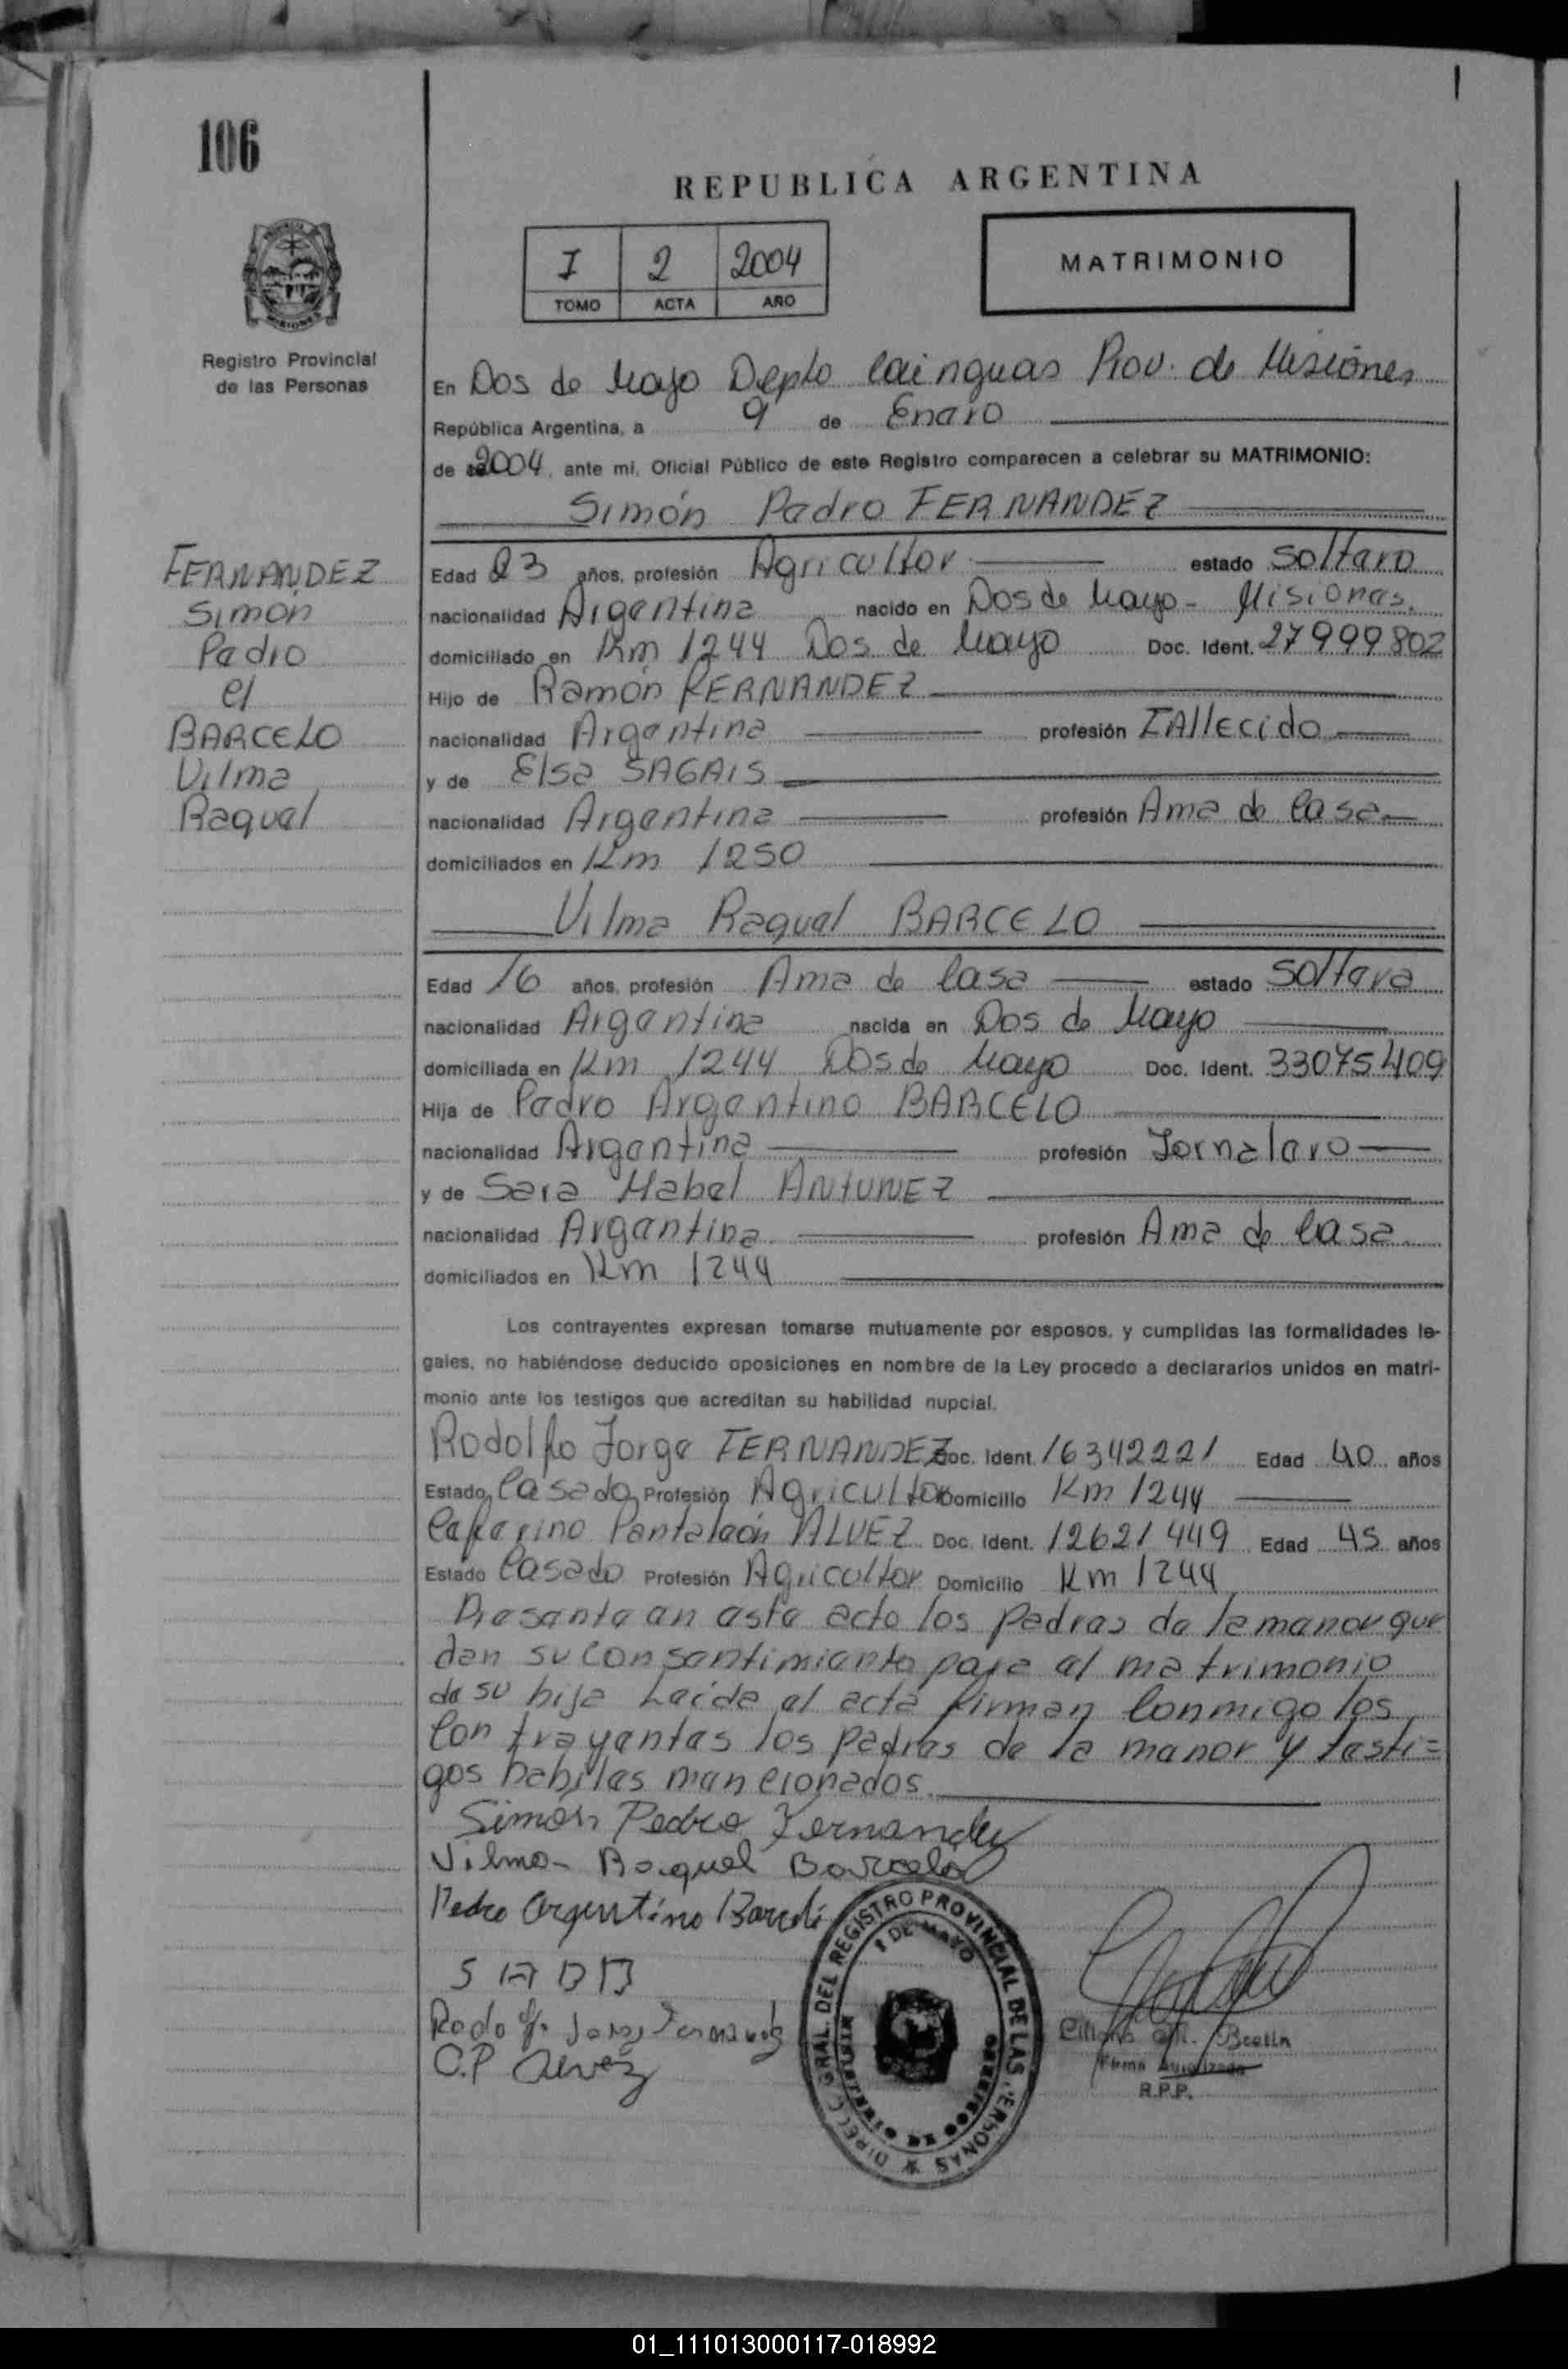 106
REPUBLICA ARGENTINA
I 2 2004
TOMO ACTA AÑO
MATRIMONIO
Registro Provincial
de las Personas
En Dos de Mayo Depto Cainguas Prov. de Misiones
República Argentina, a 9 de Enero
de 2004, ante mi, Oficial Público de este Registro comparecen a celebrar su MATRIMONIO:
Simón Pedro FERNANDEZ
FERNANDEZ
Simón
Pedro
el
BARCELO
Vilma
Raquel
Edad 23 años, profesión Agricultor estado soltero
nacionalidad Argentina nacido en Dos de Mayo - Misiones.
domiciliado en Km 1244 Dos de Mayo Doc. Ident. 27999802
Hijo de Ramón FERNANDEZ
nacionalidad Argentina profesión FAllecido
y de Elsa SAGAIS
nacionalidad Argentina profesión Ama de Casa
domiciliados en Km 1250
Vilma Raquel BARCELO
Edad 16 años, profesión Ama de Casa estado soltera
nacionalidad Argentina nacida en Dos de Mayo
domiciliada en Km 1244 Dos de Mayo Doc. Ident. 33075409
Hija de Pedro Argentino BARCELO
nacionalidad Argentina profesión Jornalero
y de Sara Mabel ANTUNEZ
nacionalidad Argentina profesión Ama de Casa
domiciliados en Km 1244
Los contrayentes expresan tomarse mutuamente por esposos, y cumplidas las formalidades le-
gales, no habiéndose deducido oposiciones en nombre de la Ley procedo a declararlos unidos en matri-
monio ante los testigos que acreditan su habilidad nupcial.
Rodolfo Jorge FERNANDEZ Doc. Ident. 16342221 Edad 40 años
Estado Casado Profesión Agricultor Domicilio Km 1244
Ceferino Pantaleón ALVEZ Doc. Ident. 12621449 Edad 45 años
Estado Casado Profesión Agricultor Domicilio Km 1244
Presente en este acto los padres de la menor que
dan su consentimiento para el matrimonio
de su hija Leída el acta firman Conmigo los
Contrayentes los padres de la menor y testi=
gos habiles mencionados.
Simón Pedro Fernandez
Vilma Raquel Barceló
Pedro Argentino Barceló
Rodolfo Jorge Fernandez
C.P Alvez
DIREC. GRAL. DEL REGISTRO PROVINCIAL DE LAS PERSONAS
DE MAYO
Firma Autorizada
R.P.P.
01_111013000117-018992